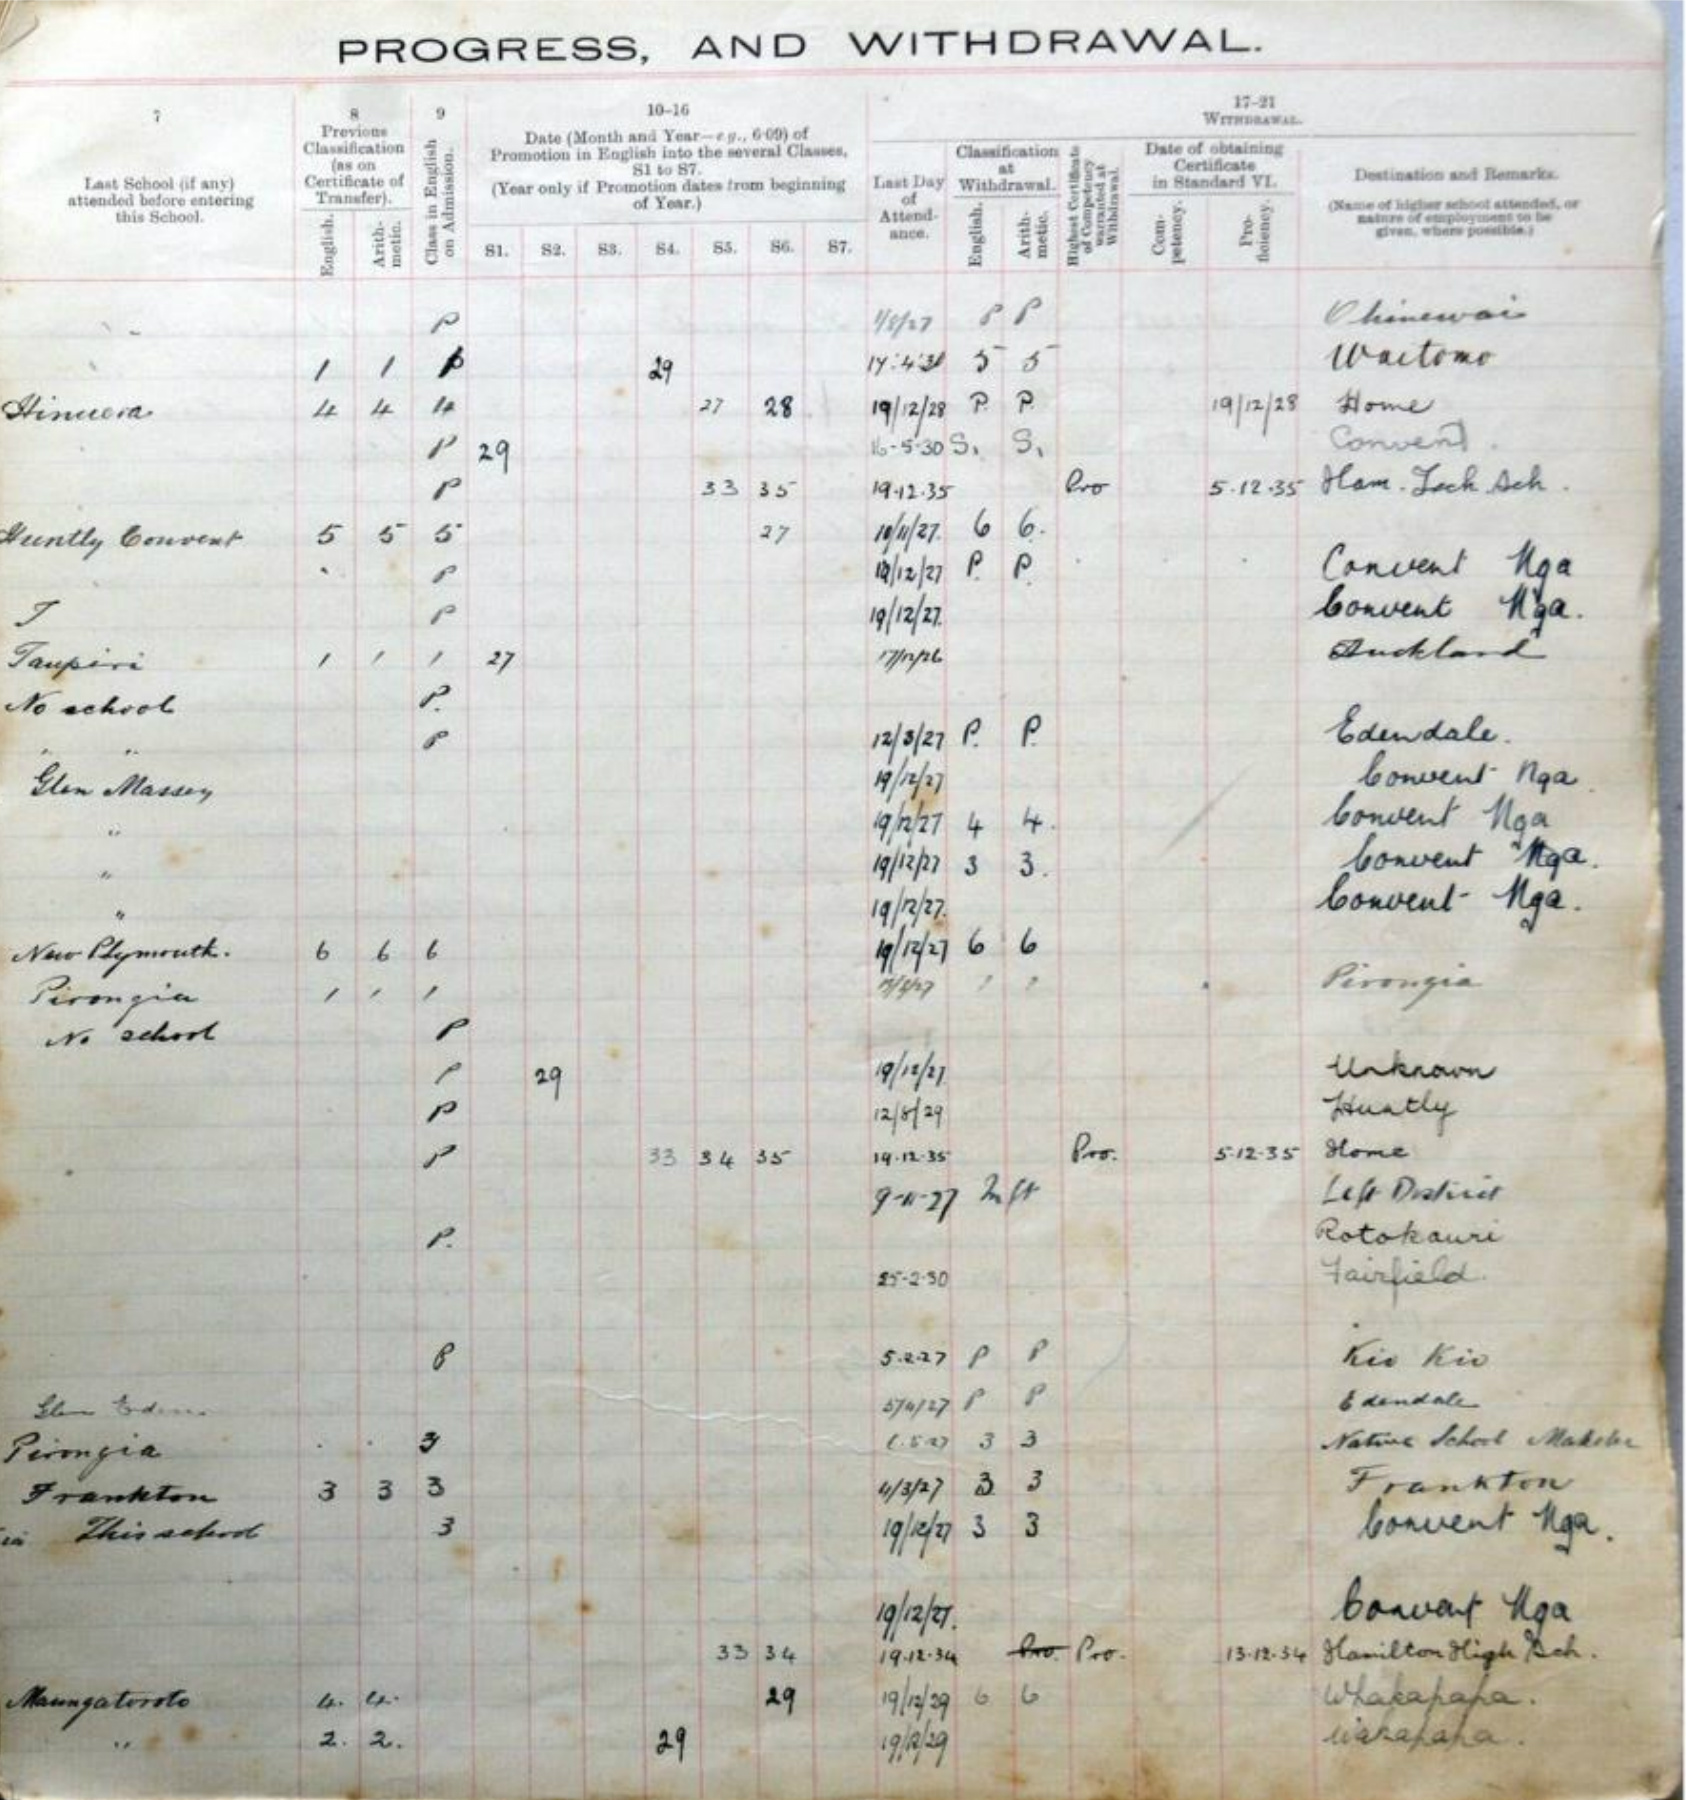 PROGRESS, AND WITHDRAWAL.
7 8 9 10–16 17–21
WITHDRAWAL.
Last School (if any) attended before entering this School.
Previous Classification (as on Certificate of Transfer).
English. Arith-metic.
Class in English on Admission.
Date (Month and Year—e.g., 6·09) of Promotion in English into the several Classes, S1 to S7.
(Year only if Promotion dates from beginning of Year.)
S1. S2. S3. S4. S5. S6. S7.
Last Day of Attend-ance.
Classification at Withdrawal.
English. Arith-metic.
Highest Certificate of Competency warranted at Withdrawal.
Date of obtaining Certificate in Standard VI.
Com-petency. Pro-ficiency.
Destination and Remarks.
(Name of higher school attended, or nature of employment to be given, where possible.)
P 1/8/27 P P Ohinewai
1 1 P 29 5 5 Waitomo
Hinuera 4 4 4 27 28 19/12/28 P. P. 19/12/28 Home
P 29 16-5-30 S1 S1 Convent.
P 33 35 19·12·35 Pro 5·12·35 Ham. Tech Sch.
Huntly Convent 5 5 5 27 10/11/27. 6 6.
P 19/12/27 P. P. Convent Nga
P 19/12/27. Convent Nga.
Taupiri 1 1 1 27 17/12/26 Auckland
No school P.
" " P 12/3/27 P. P. Edendale.
Glen Massey 19/12/27 Convent Nga
" 19/12/27 4 4. Convent Nga
" 19/12/27 3 3. Convent Nga.
" 19/12/27. Convent Nga.
New Plymouth. 6 6 6 19/12/27 6 6
Pirongia 1 1 1 1 1 Pirongia
No school P
P 29 19/12/27 Unknown
P 12/8/29 Huntly
P 33 34 35 19·12·35 Pro. 5·12·35 Home
9-11-27 Left District
P. Rotokauri
25-2-30 Fairfield.
P 5·2·27 P P Kio Kio
Glen Eden P P Edendale
Pirongia 3 3 3 Native School
Frankton 3 3 3 4/3/27 3 3 Frankton
This school 3 19/12/27 3 3 Convent Nga.
19/12/27. Convent Nga
33 34 19·12·34 Pro. Pro. 13·12·34 Hamilton High Sch.
Maungatoroto 4. 4. 29 19/12/29 6 6 Whakapapa.
" 2. 2. 29 19/12/29 Wakapapa.